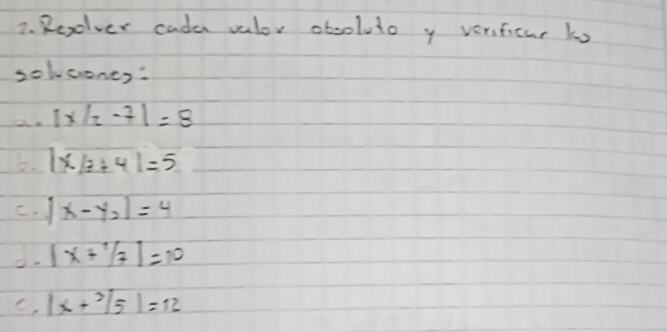 2. Resolver cada valor absoluto y verificar las
soluciones:
a. |x/2 - 7| = 8
b. |x/3 + 4| = 5
c. |x - 1/2| = 4
d. |x + 1/7| = 10
e. |x + 3/5| = 12